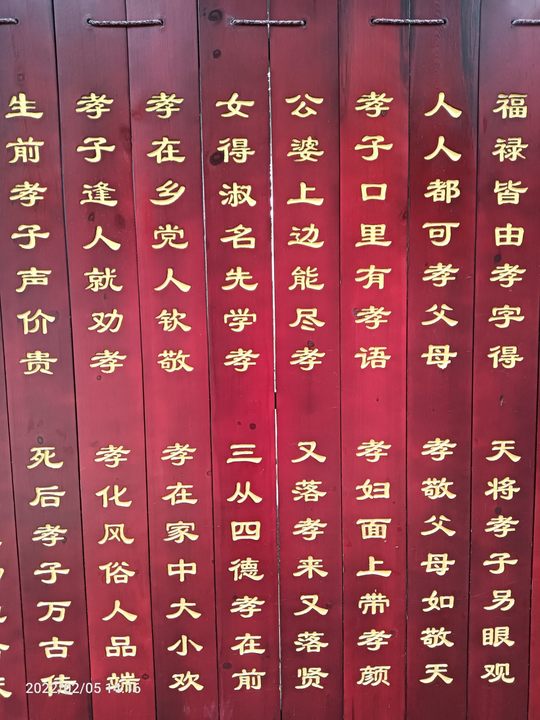 福禄皆由孝字得 天将孝子另眼观
人人都可孝父母 孝敬父母如敬天
孝子口里有孝语 孝妇面上带孝颜
公婆上边能尽孝 又落孝来又落贤
女得淑名先学孝 三从四德孝在前
孝在乡党人钦敬 孝在家中大小欢
孝子逢人就劝孝 孝化风俗人品端
生前孝子声价贵 死后孝子万古传
2022/02/05